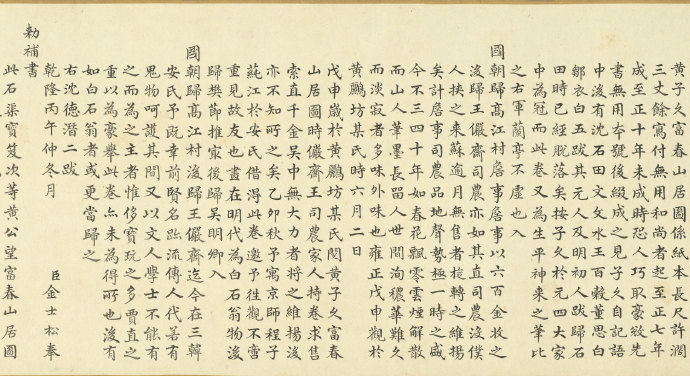 黃子久富春山居圖係紙本長尺許濶
三丈餘寫付無用和尚者起至正七年
成至正十年未成時恐人巧取豪敚先
書無用本號後綴成之見子久自記語
中後有沈石田文文水王百穀董思白
鄒衣白五跋其元人及明初人跋歸石
田時已經脫落矣按子久於元四大家
中為冠而此卷又為生平神來之筆比
之右軍蘭亭不虛也入
國朝歸高江村詹事詹事以六百金收之
後歸王儼齋司農亦如其直司農沒僕
人挾之来蘇逾月無售者旋轉之維揚
矣計詹事司農品地聲勢極一時之盛
今不三四十年如春花飄零雲煙解散
而山人筆墨長留人世間洵穠華難久
而淡寂者多味外味也雍正戊申觀於
黃鵬坊某氏時六月二日
戊申歲於黃鵬坊某氏閱黃子久富春
山居圖時儼齋王司農家人持卷求售
索直千金吳中無大力者將之維揚後
亦不知所之矣乙卯秋予寓京師程子
蒓江於安氏借得此卷邀予往觀不啻
重見故友也畫在明代為白石翁物後
歸樊節推宼後歸吳明卿入
國朝歸高江村後歸王儼齋迄今在三韓
安氏予既幸前賢名跡流傳人代若有
鬼物呵護其間又以文人學士不能有
之而為之主者惟侈寶玩之多賈直之
重以為豪舉此卷亦未為得所也後有
如白石翁者或更當歸之
右沈德潛二跋
乾隆丙午仲冬月 臣金士松奉
勅補書
此石渠寶笈次等黃公望富春山居圖